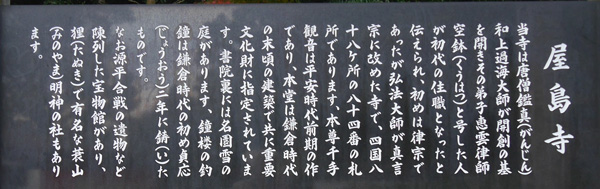 屋島寺
当寺は唐僧鑑真(がんじん)
和上過海大師が開創の基
を開きその弟子恵雲律師
空鉢(くうはつ)と号した人
が初代の住職となったと
伝えられ、初めは律宗で
あったが弘法大師が真言
宗に改めた寺で、四国八
十八ケ所の八十四番の札
所であります、本尊千手
観音は平安時代前期の作
であり、本堂は鎌倉時代
の末頃の建築で共に重要
文化財に指定されていま
す。書院裏には名園雪の
庭があります、鐘楼の釣
鐘は鎌倉時代の初め貞応
(じょうおう)二年に鋳(い)た
ものです。
なお源平合戦の遺物など
陳列した宝物館があり、
狸(たぬき)で有名な蓑山
(みのやま)明神の社もあり
ます。